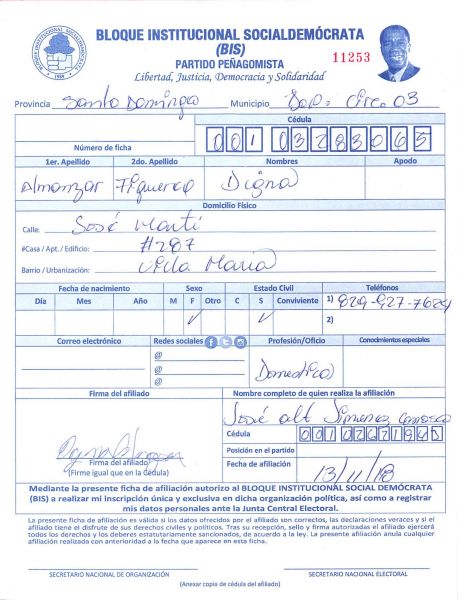 BLOQUE INSTITUCIONAL SOCIALDEMÓCRATA
(BIS)
11253
PARTIDO PEÑAGOMISTA
Libertad, Justicia, Democracia y Solidaridad
Provincia Santo Domingo Municipio Circ. 03
Cédula
Número de ficha
1er. Apellido 2do. Apellido Nombres Apodo
Almanzar Figuereo Digna
Domicilio Físico
Calle: José Martí
#Casa / Apt. / Edificio: #287
Barrio / Urbanización: Villa María
Fecha de nacimiento Sexo Estado Civil Teléfonos
Día Mes Año M F Otro C S Conviviente 1) 829-927-7624
✓ ✓ 2)
Correo electrónico Redes sociales Profesión/Oficio Conocimientos especiales
@
@ Domestica
@
Firma del afiliado Nombre completo de quien realiza la afiliación
José alt Jimenez
Cédula
Posición en el partido
Firma del afiliado
(Firme igual que en la Cédula)
Fecha de afiliación 13/11/18
Mediante la presente ficha de afiliación autorizo al BLOQUE INSTITUCIONAL SOCIAL DEMÓCRATA
(BIS) a realizar mi inscripción única y exclusiva en dicha organización política, así como a registrar
mis datos personales ante la Junta Central Electoral.
La presente ficha de afiliación es válida si los datos ofrecidos por el afiliado son correctos, las declaraciones veraces y si el
afiliado tiene el disfrute de sus derechos civiles y políticos. Tras su recepción, sello y firma autorizados el afiliado ejercerá
todos los derechos y los deberes estatutariamente sancionados, de acuerdo a la ley. La presente afiliación anula cualquier
afiliación realizada con anterioridad a la fecha que aparece en esta ficha.
SECRETARIO NACIONAL DE ORGANIZACIÓN SECRETARIO NACIONAL ELECTORAL
(Anexar copia de cédula del afiliado)